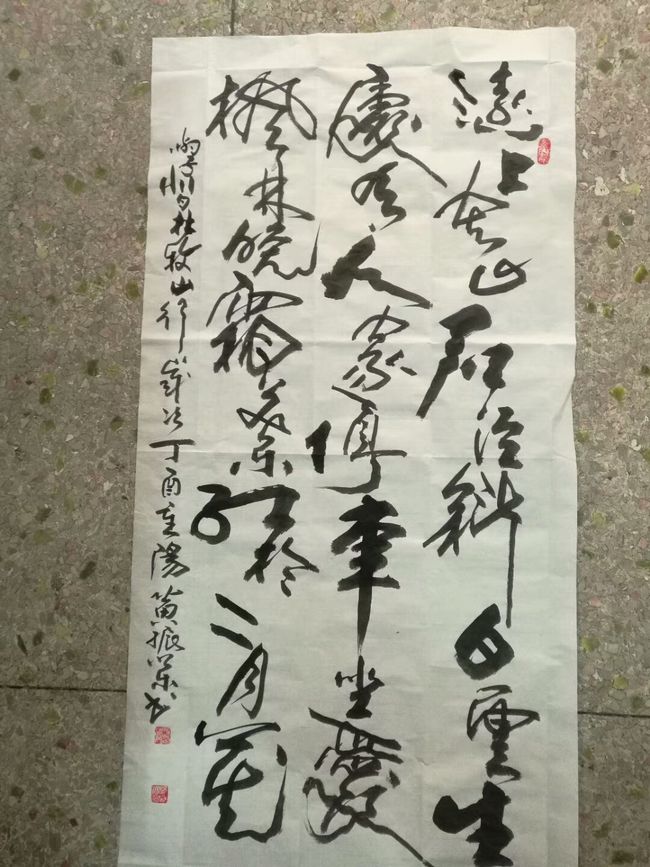 遠上寒山石径斜白雲生
處有人家停車坐愛
楓林晚霜葉紅於二月花
杜牧山行歲次丁酉重陽黄振书